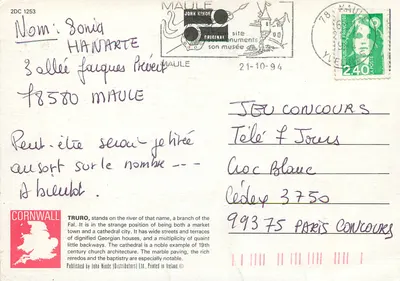 2DC 1253
Nom: Sonia
HANARTE
3 allée Jacques Prévert
78580 MAULE
Peut-être serai-je tirée
au sort sur le nombre ---
A bientôt.
MAULE
site
monuments
son musée
MAULE
21-10-94
78 MAULE
2,40
JEU CONCOURS
Télé 7 Jours
Croc Blanc
Cédex 3750
99375 PARIS CONCOURS
CORNWALL
TRURO, stands on the river of that name, a branch of the
Fal. It is in the strange position of being both a market
town and a cathedral city. It has wide streets and terraces
of dignified Georgian houses, and a multiplicity of quaint
little backways. The cathedral is a noble example of 19th
century church architecture. The marble paving, the rich
reredos and the baptistry are especially notable.
Published by John Hinde (Distributors) Ltd, Printed in Ireland ©